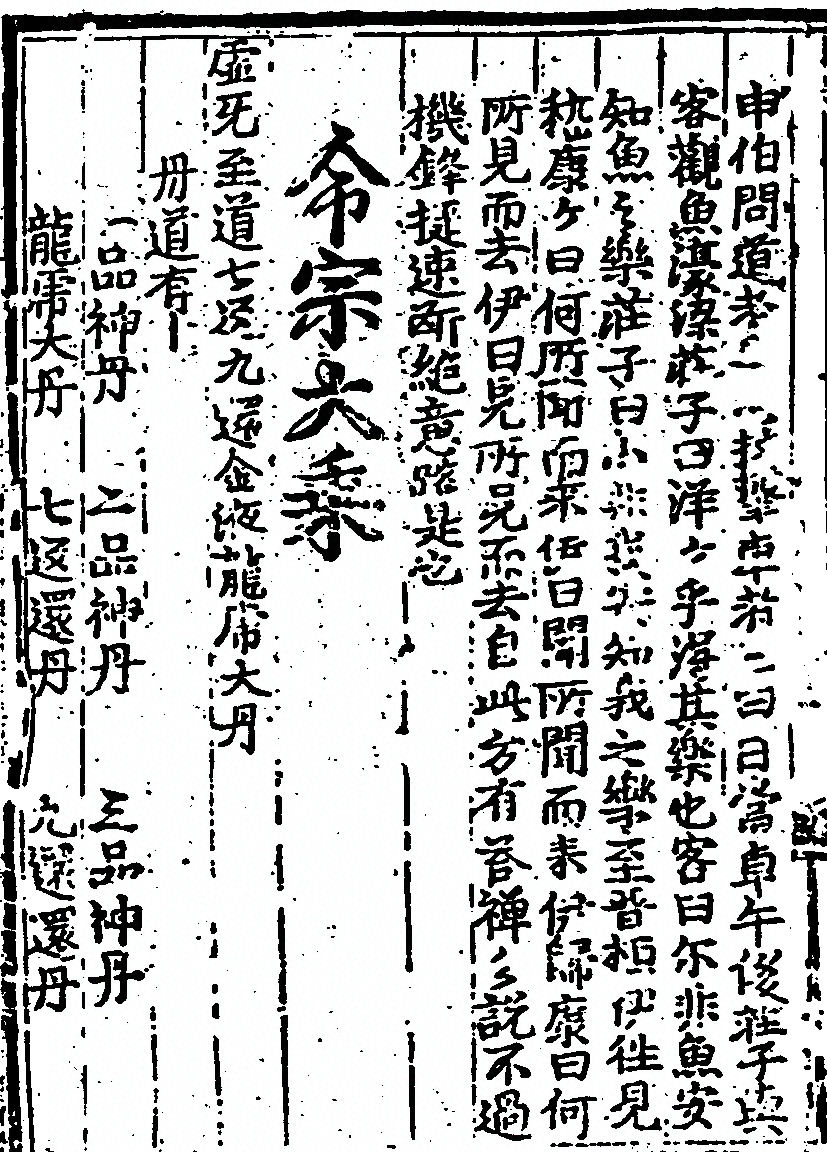 申伯問道老二 擊車若二曰日當卓午後莊子與
客觀魚濠梁莊子曰洋々乎得其樂也客曰尔非魚安
知魚之樂莊子曰尔非我安知我之樂至晉桓伊徃見
嵇康々曰何所聞而來伍曰聞所聞而来伊歸康曰何
所見而去伊曰見所見而去自此方有荅禪之說不過
機鋒捷速斷絶意路是也
命宗大乗
虛死至道七返九還金液龍虎大丹
丹道有
一品神丹 二品神丹 三品神丹
龍虎大丹 七返還丹 九還還丹